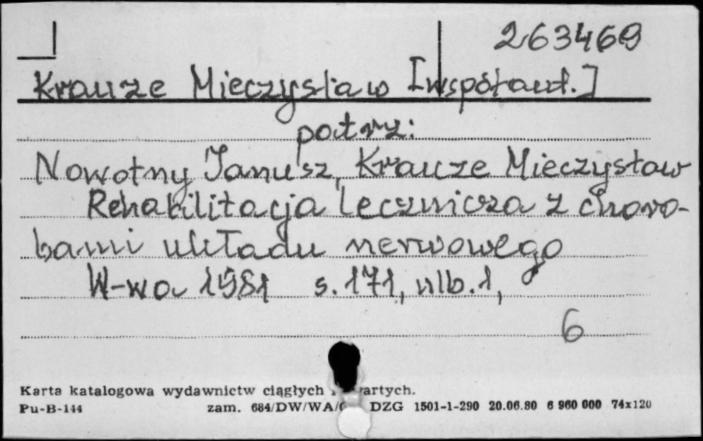 263469
Krauze Mieczysław [współaut.]
patrz:
Nowotny Janusz, Krauze Mieczysław
Rehabilitacja lecznicza z choro-
bami układu nerwowego
W-wa 1981 s. 171, nlb. 1,
6
Karta katalogowa wydawnictw ciągłych
Pu-B-144 zam. 684/DW/WA/ DZG 1501-1-290 20.06.80 6 960 000 74x120